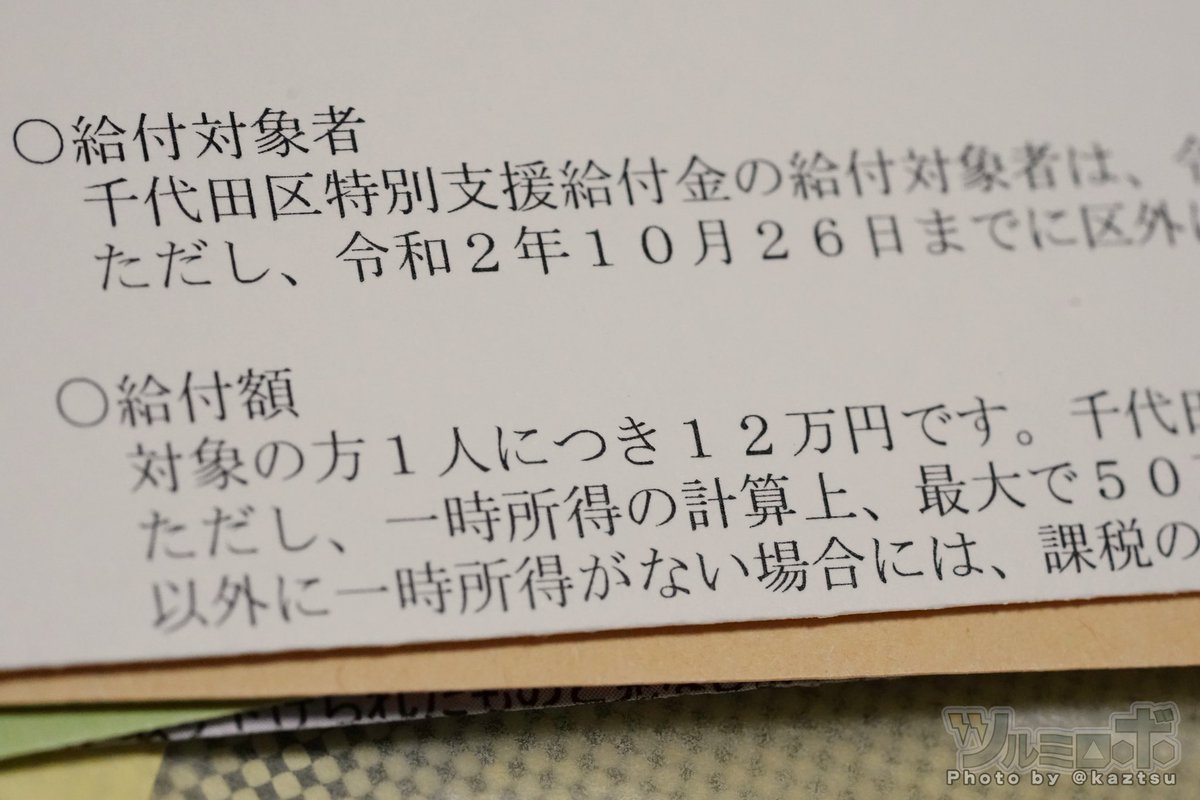 ○給付対象者
千代田区特別支援給付金の給付対象者は、令
ただし、令和2年10月26日までに区外に
○給付額
対象の方1人につき12万円です。千代田
ただし、一時所得の計算上、最大で50万
以外に一時所得がない場合には、課税の
ツルミロボ
Photo by @kaztsu